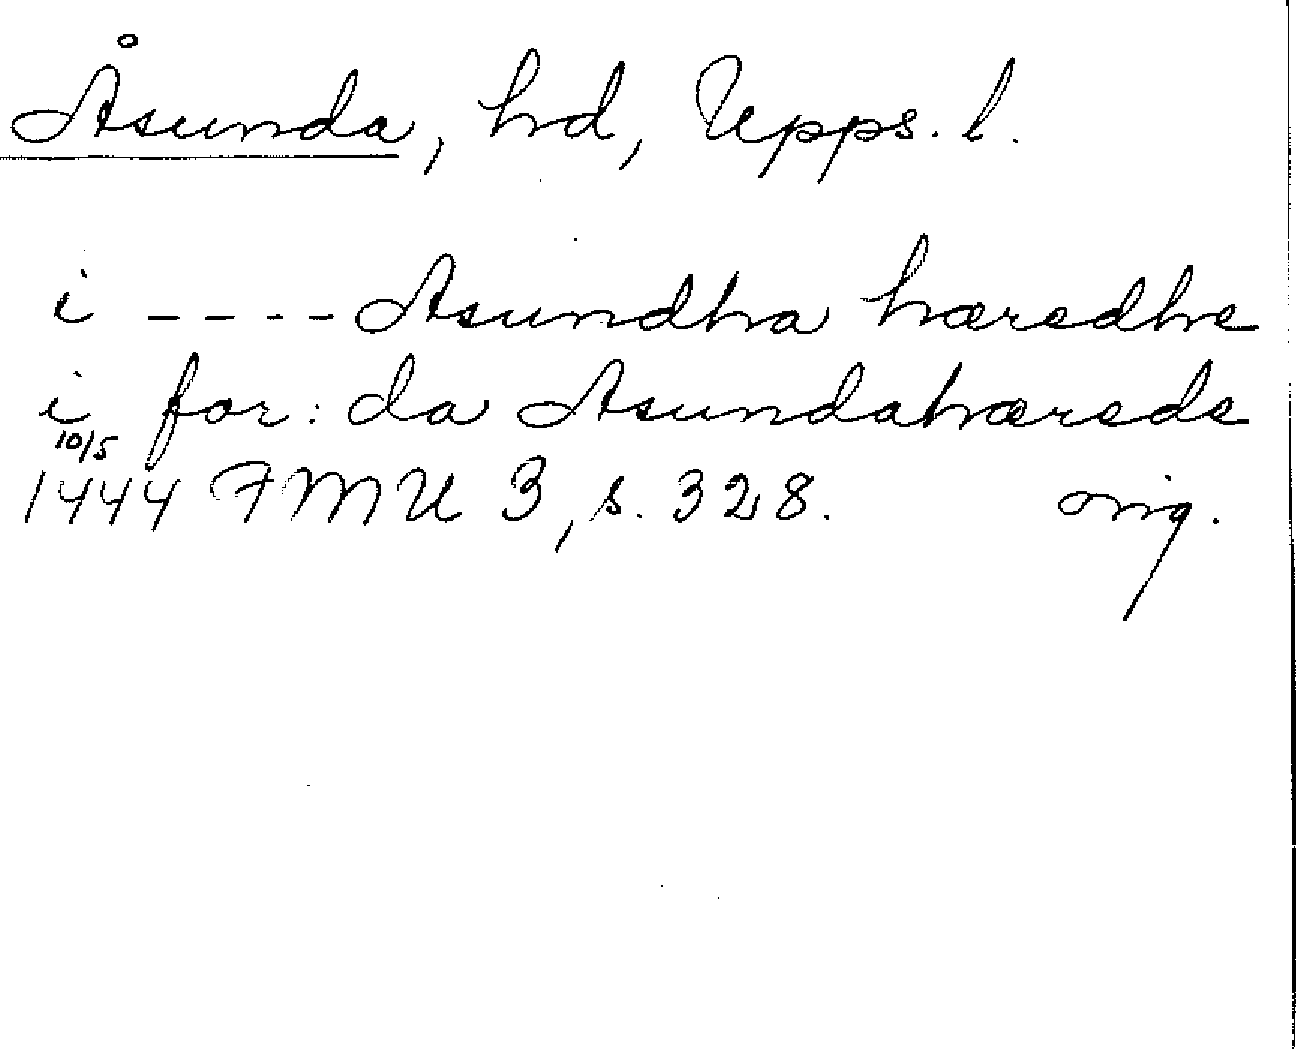 Åsunda, hd, Upps. l.
i ---- Asundha hæredhe
i for: da Asundahærede
10/5
1444 FMU 3, s. 328. orig.